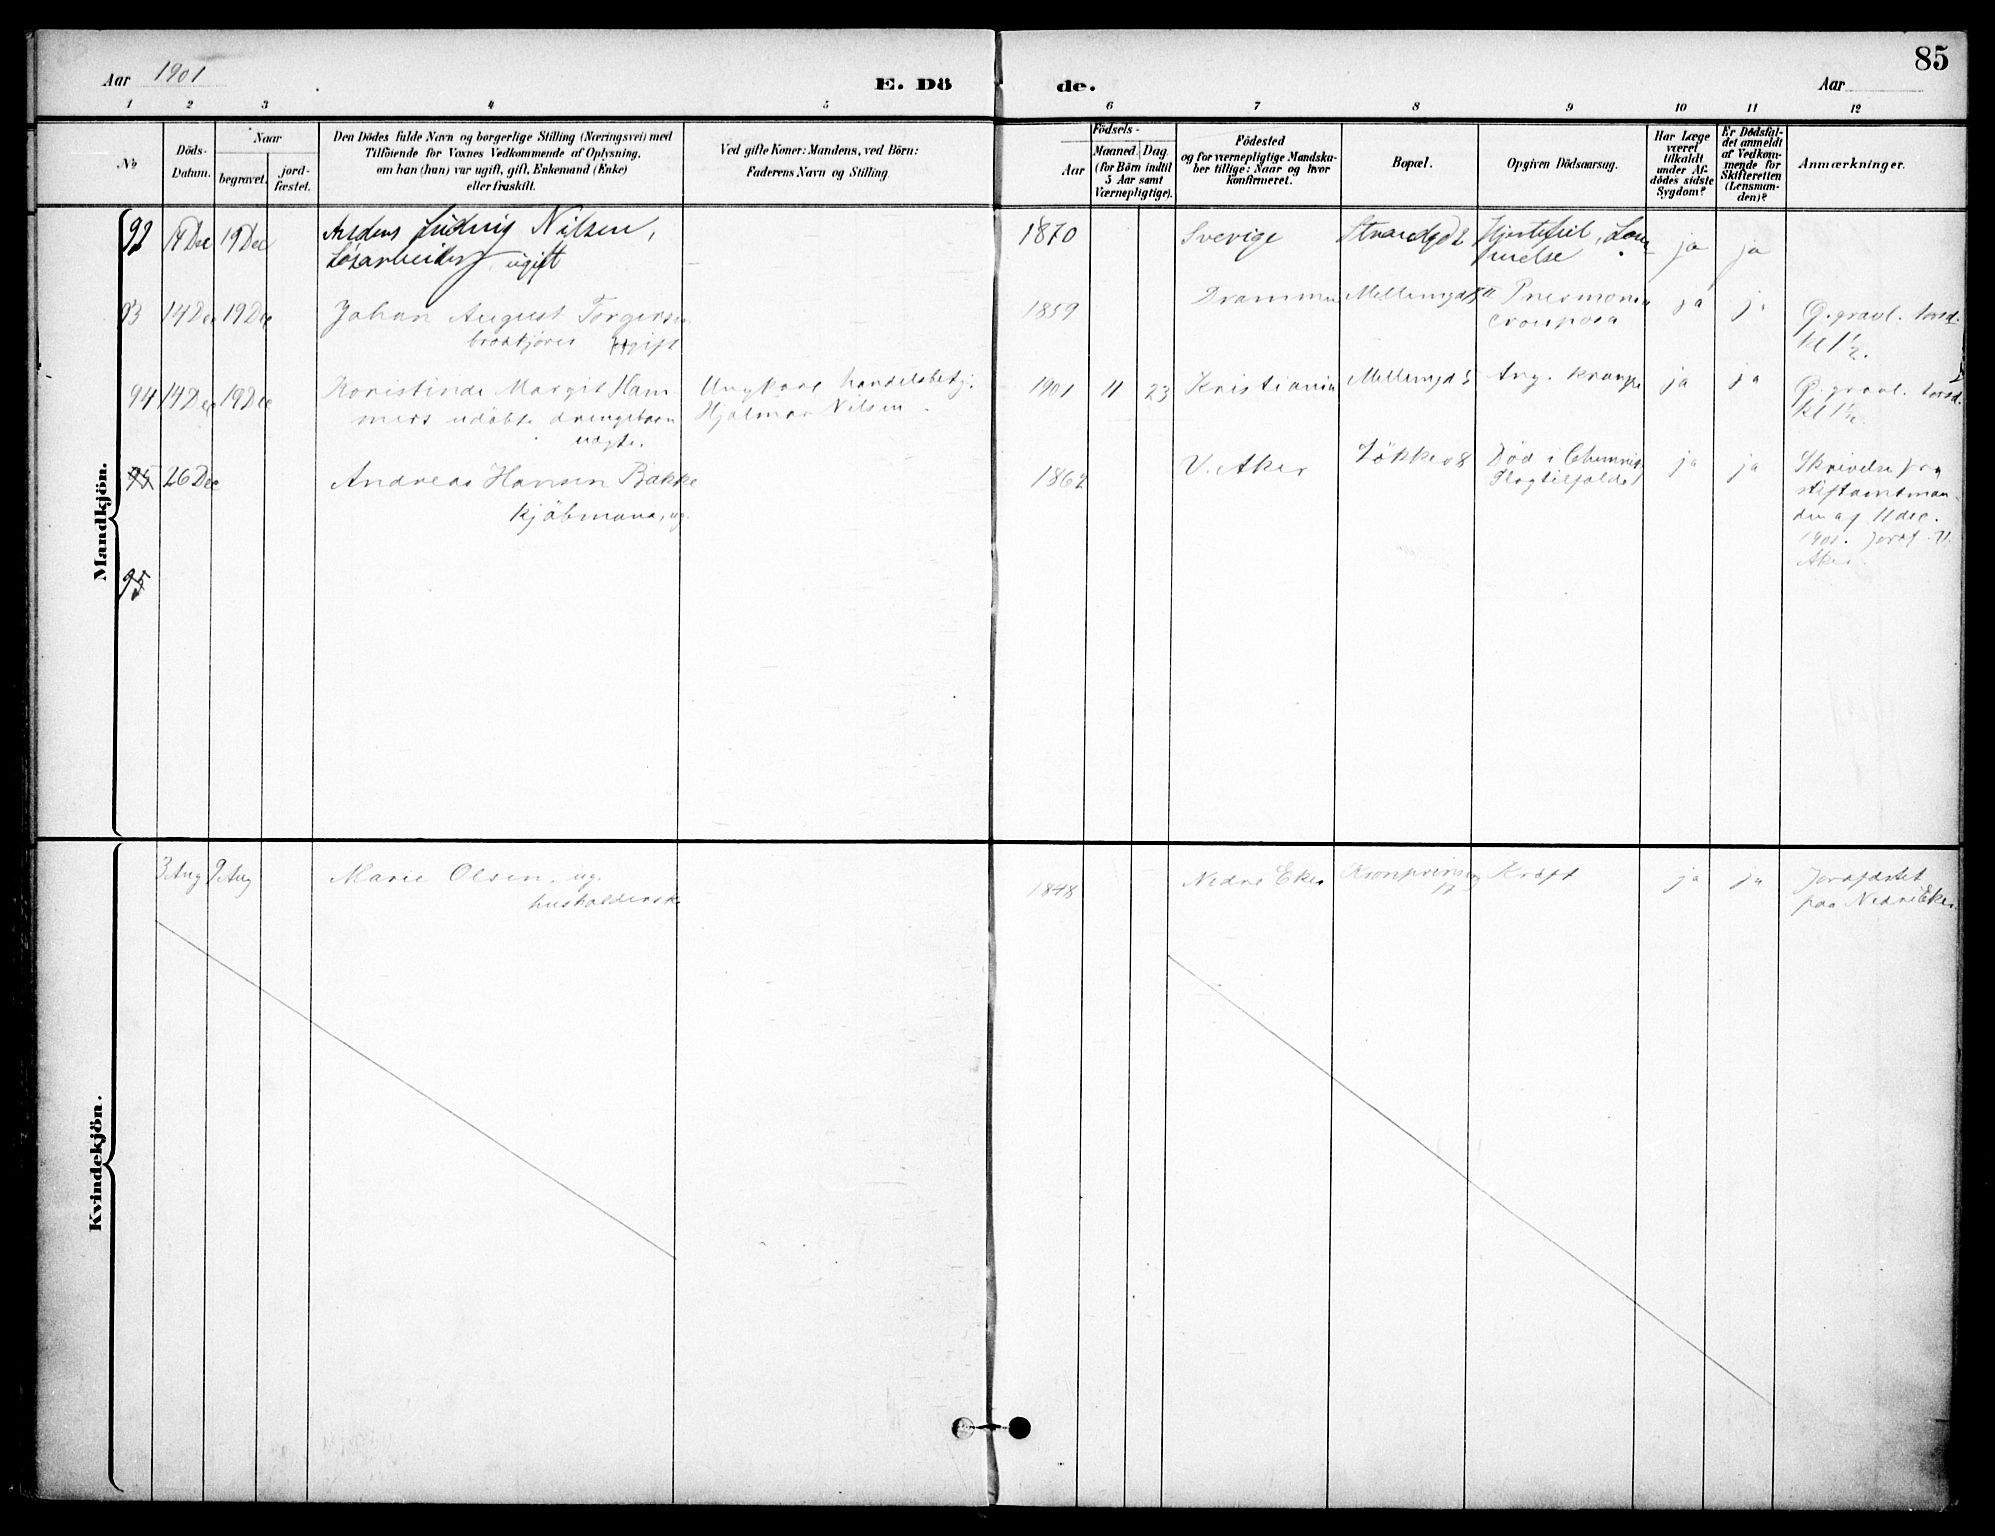 85
Aar 1901
E. Dö de.
Aar
1 2 3 4 5 6 7 8 9 10 11 12
No
Döds-
Datum.
Naar
begravet.
jord-
fæstet.
Den Dödes fulde Navn og borgerlige Stilling (Næringsvei) med
Tilföiende for Voxnes Vedkommende af Oplysning,
om han (hun) var ugift, gift, Enkemand (Enke)
eller fraskilt.
Ved gifte Koner: Mandens, ved Börn:
Faderens Navn og Stilling.
Födsels-
Aar
Maaned. Dag
(for Börn indtil
5 Aar samt
Værnepligtige).
Födested
og for værnepligtige Mandska-
ber tillige: Naar og hvor
konfirmeret.
Bopæl.
Opgiven Dödsaarsag.
Har Læge
været
tilkaldt
under Af-
dödes sidste
Sygdom?
Er Dödsfal-
det anmeldt
af Vedkom-
mende for
Skifteretten
(Lensman-
den)?
Anmærkninger.
Mandkjön.
92 14 Dec 19 Dec Anders Ludvig Nilsen, 1870 Sverige Strandgd 2 Hjertefeil, ja ja
Løsarbeider, ugift
93 14 Dec 19 Dec Johan August Torgersen 1859 Drammen Mellemgd Pneumonia ja ja G. gravl. torsd.
ugift crouposa kl 1½.
94 14 Dec 19 Dec Kristinde Margit Ham- Ungkarl handelsbetj. 1901 11 23 Kristiania Mellemgd 5 krampe ja ja G. gravl. torsd.
mers udøbte drengebarn Hjalmar Nilsen. kl 1½.
uægte.
95 26 Dec Andreas Hansen Bakke 1862 V. Aker Løkkeg 8 Død i ja ja Skrivelse fra
kjøbmand, ug. Slagtilfælde stiftamtman-
den af 11 dec.
1901. V.
Aker.
95
Kvindekjön.
3 Aug 9 Aug Marie Olsen, ug. 1848 Nedre Eker Kronprinsensg Kræft ja ja Jordfæstet
husholderske 17 paa Nedre Eker.